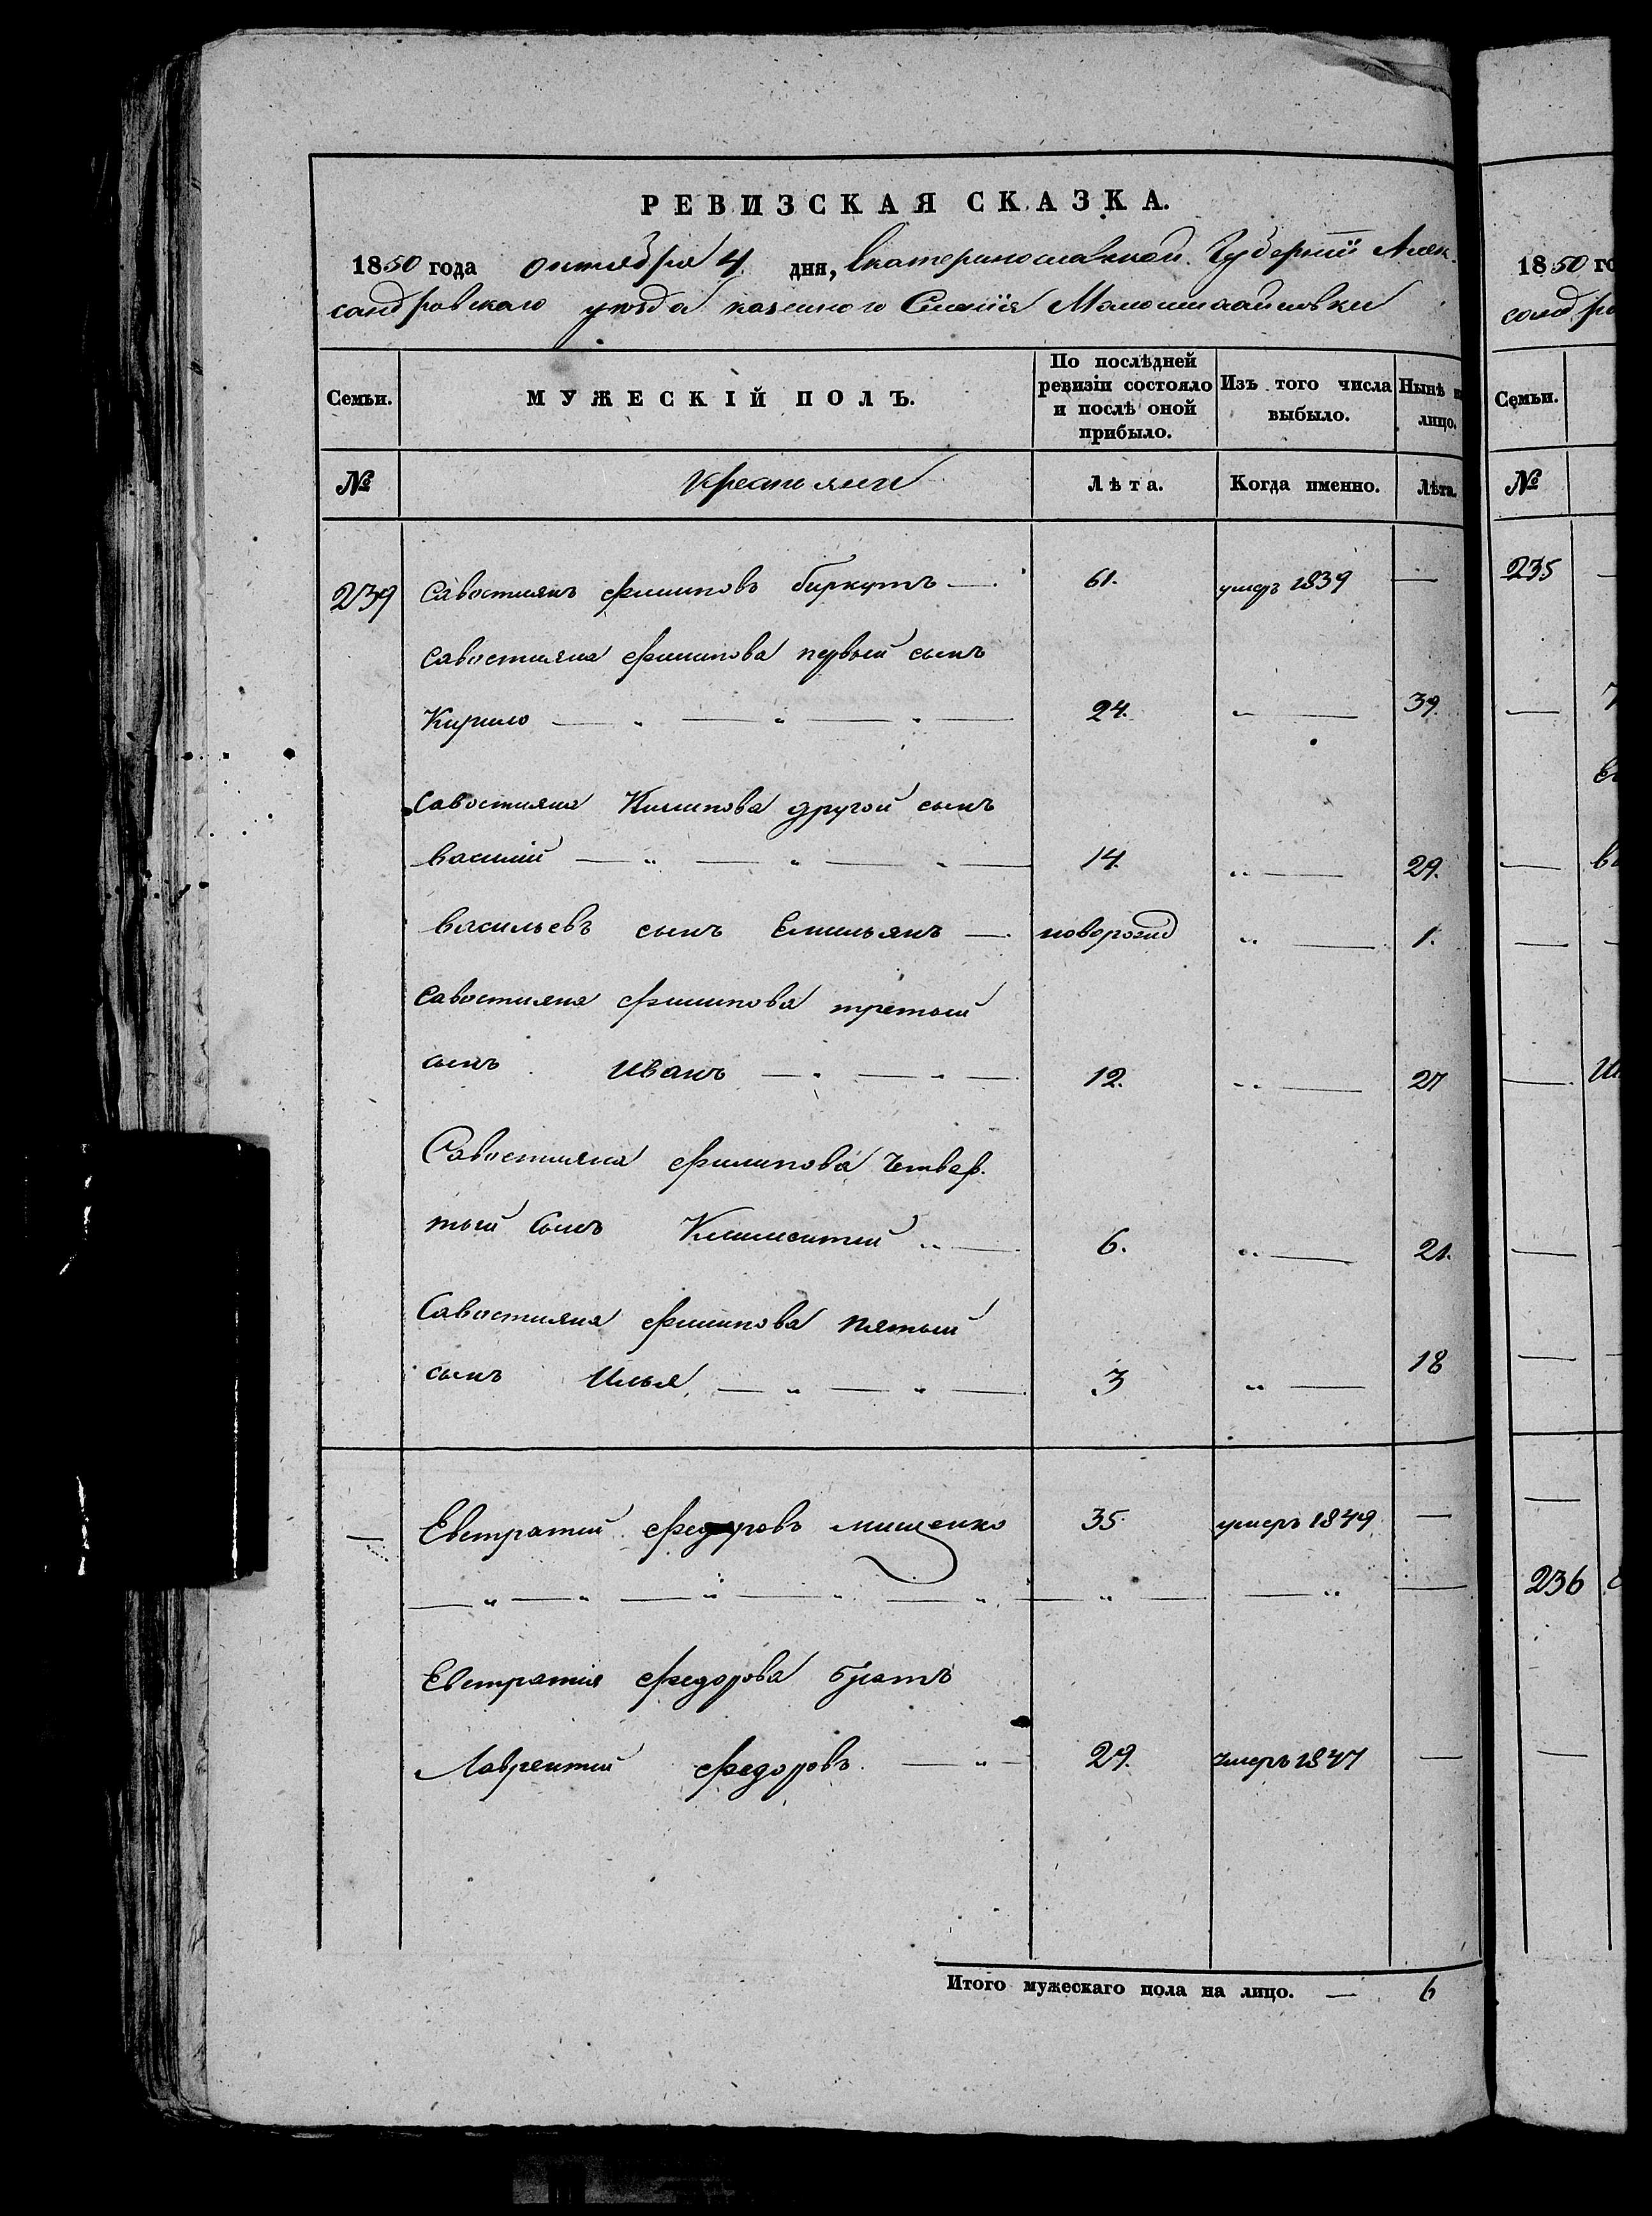 РЕВИЗСКАЯ СКАЗКА.
1850 года октября 4 дня, Екатеринославской Губернии Алек-
сандровского уезда казенного Селения Маломихайловки
Семьи. МУЖЕСКІЙ ПОЛЪ. По послѣдней ревизіи состояло и послѣ оной прибыло. Изъ того числа выбыло. Нынѣ лицо.
№ Крестьяне Лѣта. Когда именно. Лѣта.
239 Савостиянъ Филиповъ биркутъ — 61. умеръ 1839 —
Савостияна Филипова первый сынъ
Кирило — " — " — " — 24. " — 39.
Савостияна Килипова другой сынъ
василий — " — " — " — 14. " — 29.
васильевъ сынъ Емильянъ — новорожд " — 1.
Савостияна Филипова третьий
сынъ Иванъ — " — " — 12. " — 27
Савостияна Филипова Четвер-
тый Сынъ Климентий " — 6. " — 21.
Савостияна Филипова пятый
сынъ Илья, — " — " — 3 " — 18
— Евстратий Федоровъ мищенко 35. умеръ 1849 —
— " — " — " — " — " — " — " —
Евстратия Федорова братъ
Лаврентий Федоровъ. — " — 29. Умеръ 1847 —
Итого мужескаго пола на лицо. — 6
1850 го
Семьи.
№
235
236